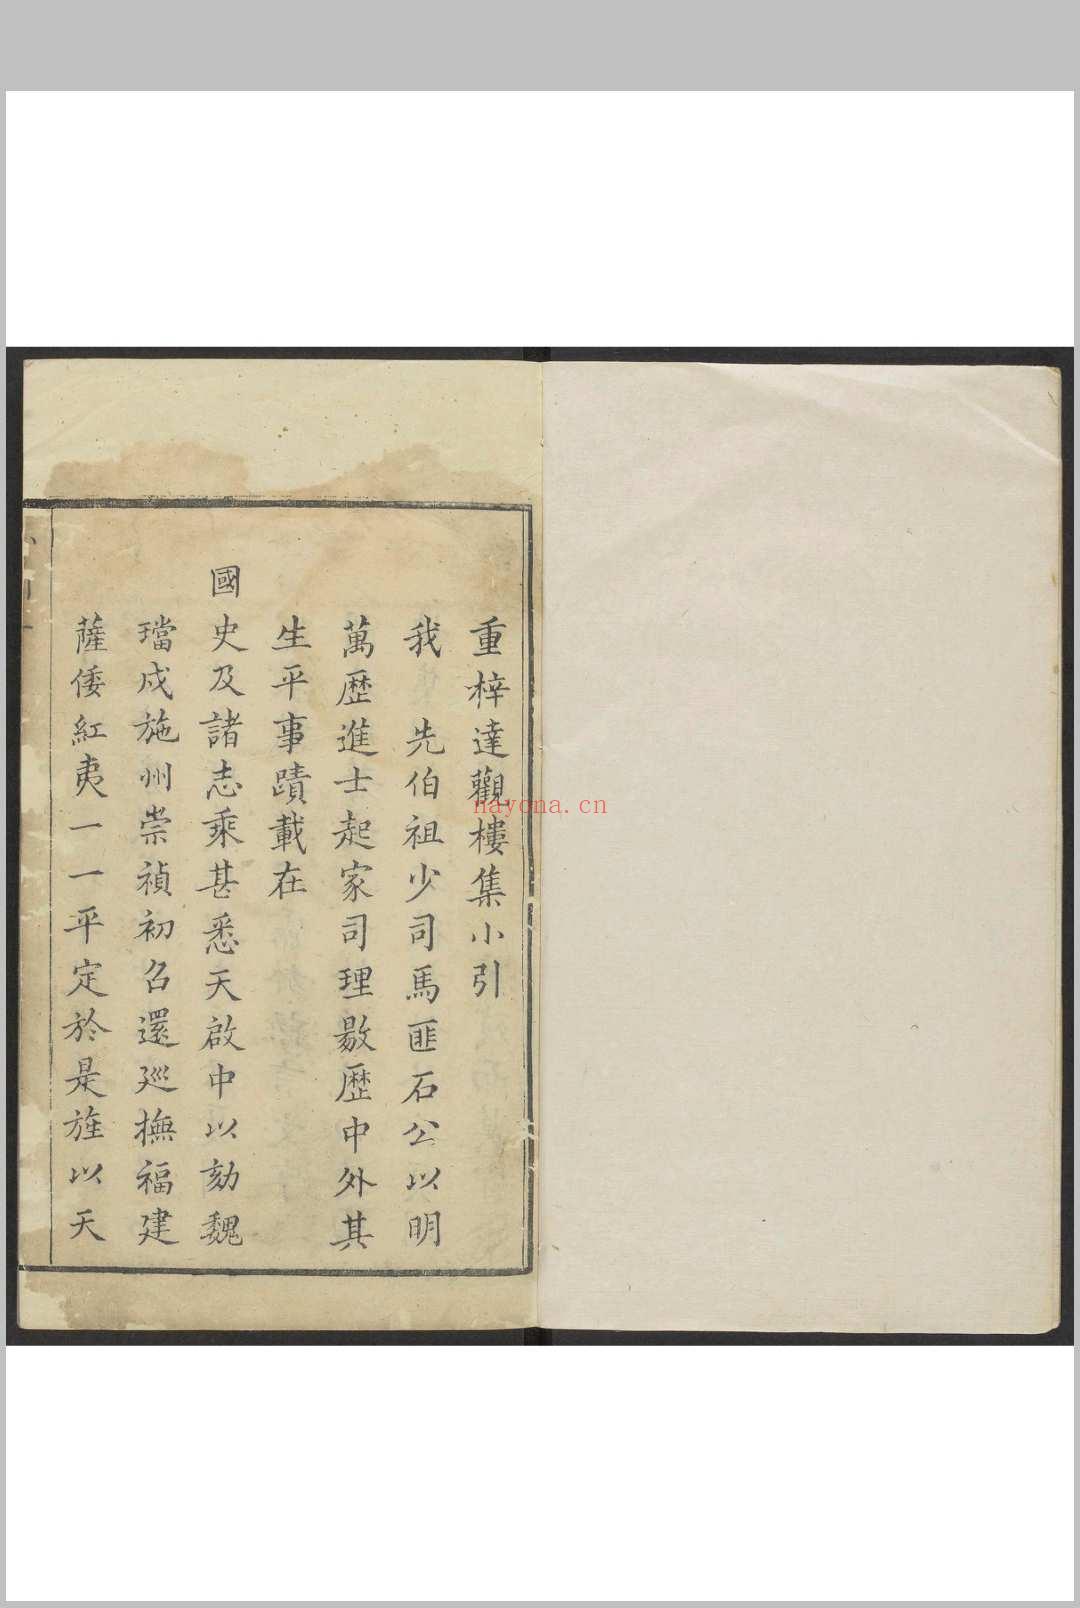 重梓達觀樓集小引
我　先伯祖少司馬匪石公以明
萬歷進士起家司理敭歷中外其
生平事蹟載在
國史及諸志乘甚悉天啟中以劾魏
璫戍施州崇禎初召還廵撫福建
薩倭紅夷一一平定於是旌以天
nayona.cn